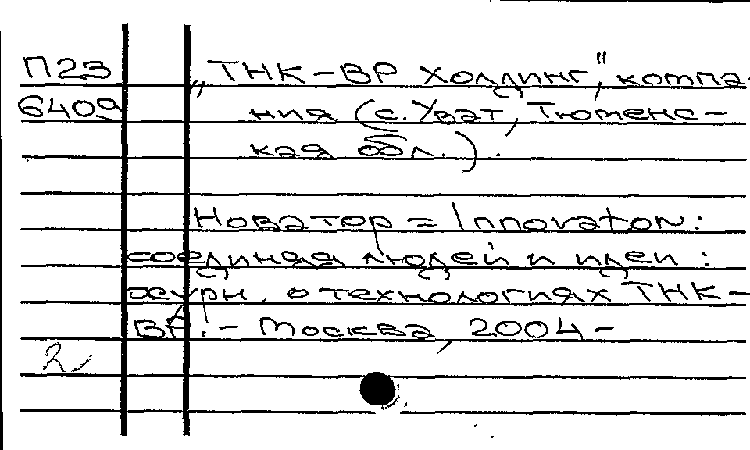 П23 „ТНК-ВР Холдинг", компа-
6409 ния (с. Уват, Тюменс-
кая обл.).
Новатор = Innovator:
соединяя людей и идеи :
журн. о технологиях ТНК-
ВР. - Москва, 2004 -
2